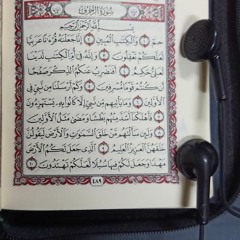 سُورَةُ الزُّخْرُفِ
بِسْمِ اللَّهِ الرَّحْمَٰنِ الرَّحِيمِ
حمٓ ۝١ وَالْكِتَابِ الْمُبِينِ ۝٢ إِنَّا جَعَلْنَاهُ قُرْآنًا عَرَبِيًّا
لَعَلَّكُمْ تَعْقِلُونَ ۝٣ وَإِنَّهُ فِي أُمِّ الْكِتَابِ لَدَيْنَا
لَعَلِيٌّ حَكِيمٌ ۝٤ أَفَنَضْرِبُ عَنكُمُ الذِّكْرَ صَفْحًا
أَن كُنتُمْ قَوْمًا مُّسْرِفِينَ ۝٥ وَكَمْ أَرْسَلْنَا مِن نَّبِيٍّ فِي
الْأَوَّلِينَ ۝٦ وَمَا يَأْتِيهِم مِّن نَّبِيٍّ إِلَّا كَانُوا بِهِ يَسْتَهْزِئُونَ
۝٧ فَأَهْلَكْنَا أَشَدَّ مِنْهُم بَطْشًا وَمَضَىٰ مَثَلُ الْأَوَّلِينَ
۝٨ وَلَئِن سَأَلْتَهُم مَّنْ خَلَقَ السَّمَاوَاتِ وَالْأَرْضَ لَيَقُولُنَّ
خَلَقَهُنَّ الْعَزِيزُ الْعَلِيمُ ۝٩ الَّذِي جَعَلَ لَكُمُ الْأَرْضَ
مَهْدًا وَجَعَلَ لَكُمْ فِيهَا سُبُلًا لَّعَلَّكُمْ تَهْتَدُونَ ۝١٠
٤٨٩